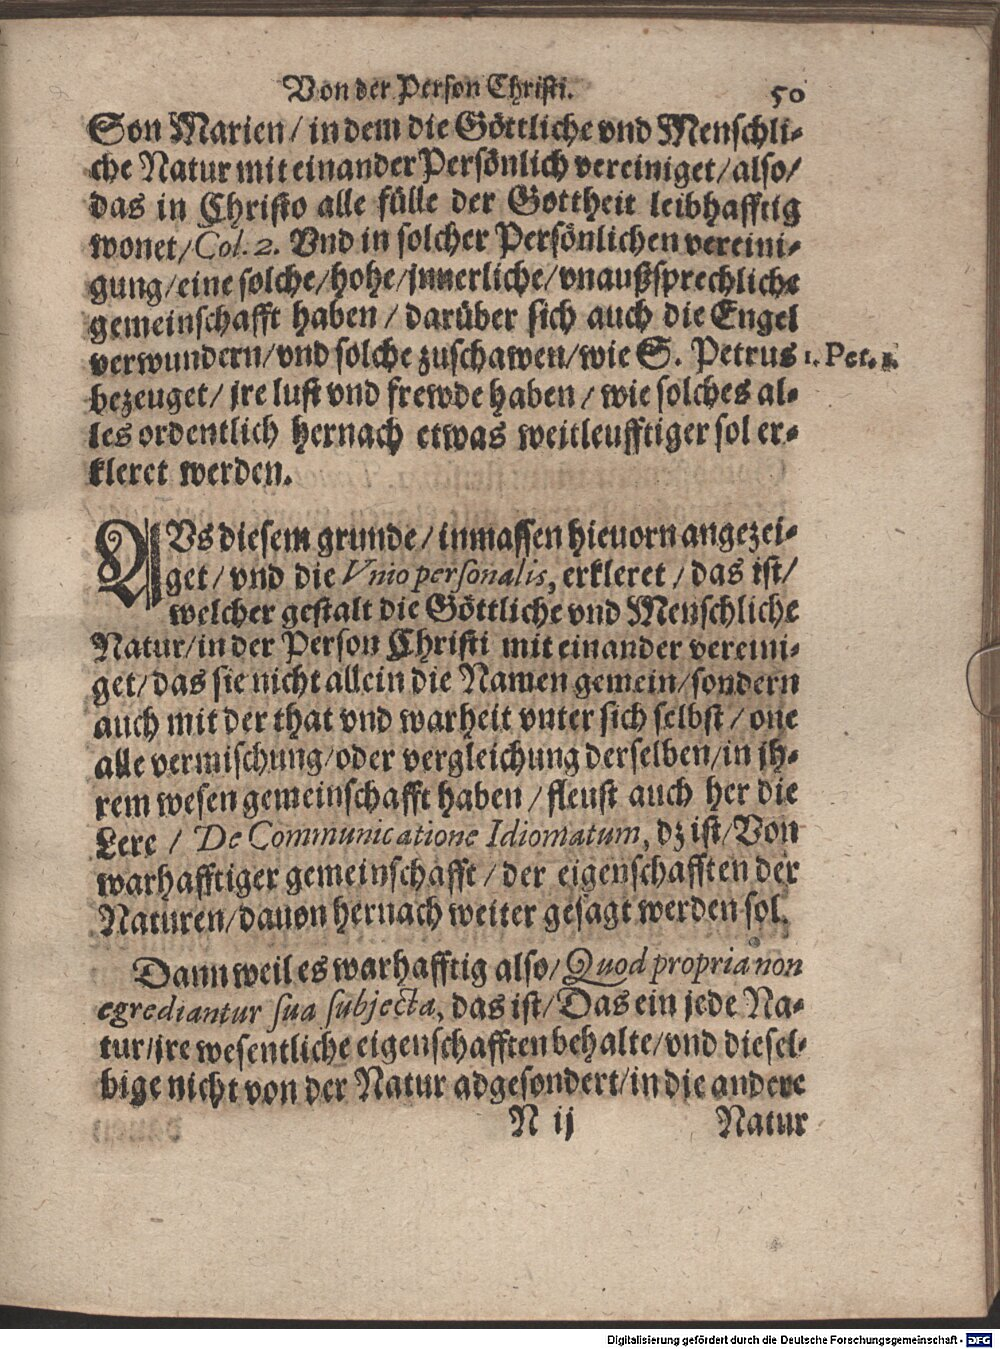 Von der Person Christi. 50
Son Marien / in dem die Göttliche vnd Menschli-
che Natur mit einander Persönlich vereiniget / also /
das in Christo alle fülle der Gottheit leibhafftig
wonet / Col. 2. Vnd in solcher Persönlichen vereini-
gung / eine solche / hohe / jnnerliche / vnaußsprechliche
gemeinschafft haben / darüber sich auch die Engel
verwundern / vnd solche zuschawen / wie S. Petrus 1. Pet. 1.
bezeuget / jre lust vnd frewde haben / wie solches al-
les ordentlich hernach etwas weitleufftiger sol er-
kleret werden.
AVs diesem grunde / inmassen hieuorn angezei-
get / vnd die Vnio personalis, erkleret / das ist /
welcher gestalt die Göttliche vnd Menschliche
Natur / in der Person Christi mit einander vereini-
get / das sie nicht allein die Namen gemein / sondern
auch mit der that vnd warheit vnter sich selbst / one
alle vermischung / oder vergleichung derselben / in jh-
rem wesen gemeinschafft haben / fleust auch her die
Lere / De Communicatione Idiomatum, dz ist / Von
warhafftiger gemeinschafft / der eigenschafften der
Naturen / dauon hernach weiter gesagt werden sol.
Dann weil es warhafftig also / Quod propria non
egrediantur sua subjecta, das ist / Das ein jede Na-
tur / jre wesentliche eigenschafften behalte / vnd diesel-
bige nicht von der Natur abgesondert / in die andere
N ij Natur
Digitalisierung gefördert durch die Deutsche Forschungsgemeinschaft - DFG